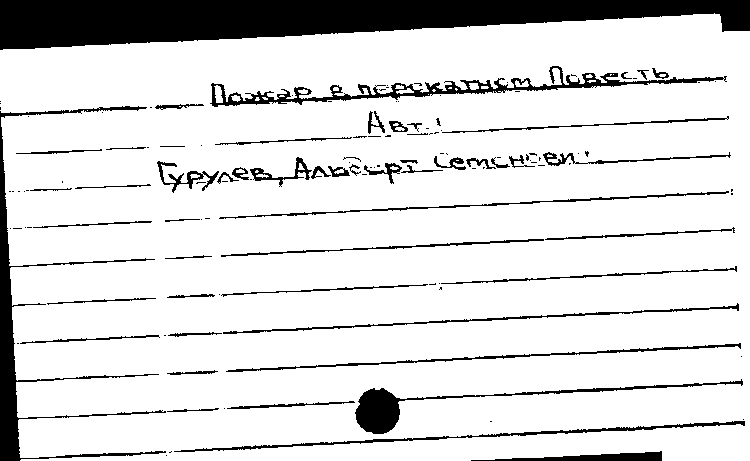 Пожар в перекатном. Повесть.
Авт.:
Гурулев, Альберт Семенович.